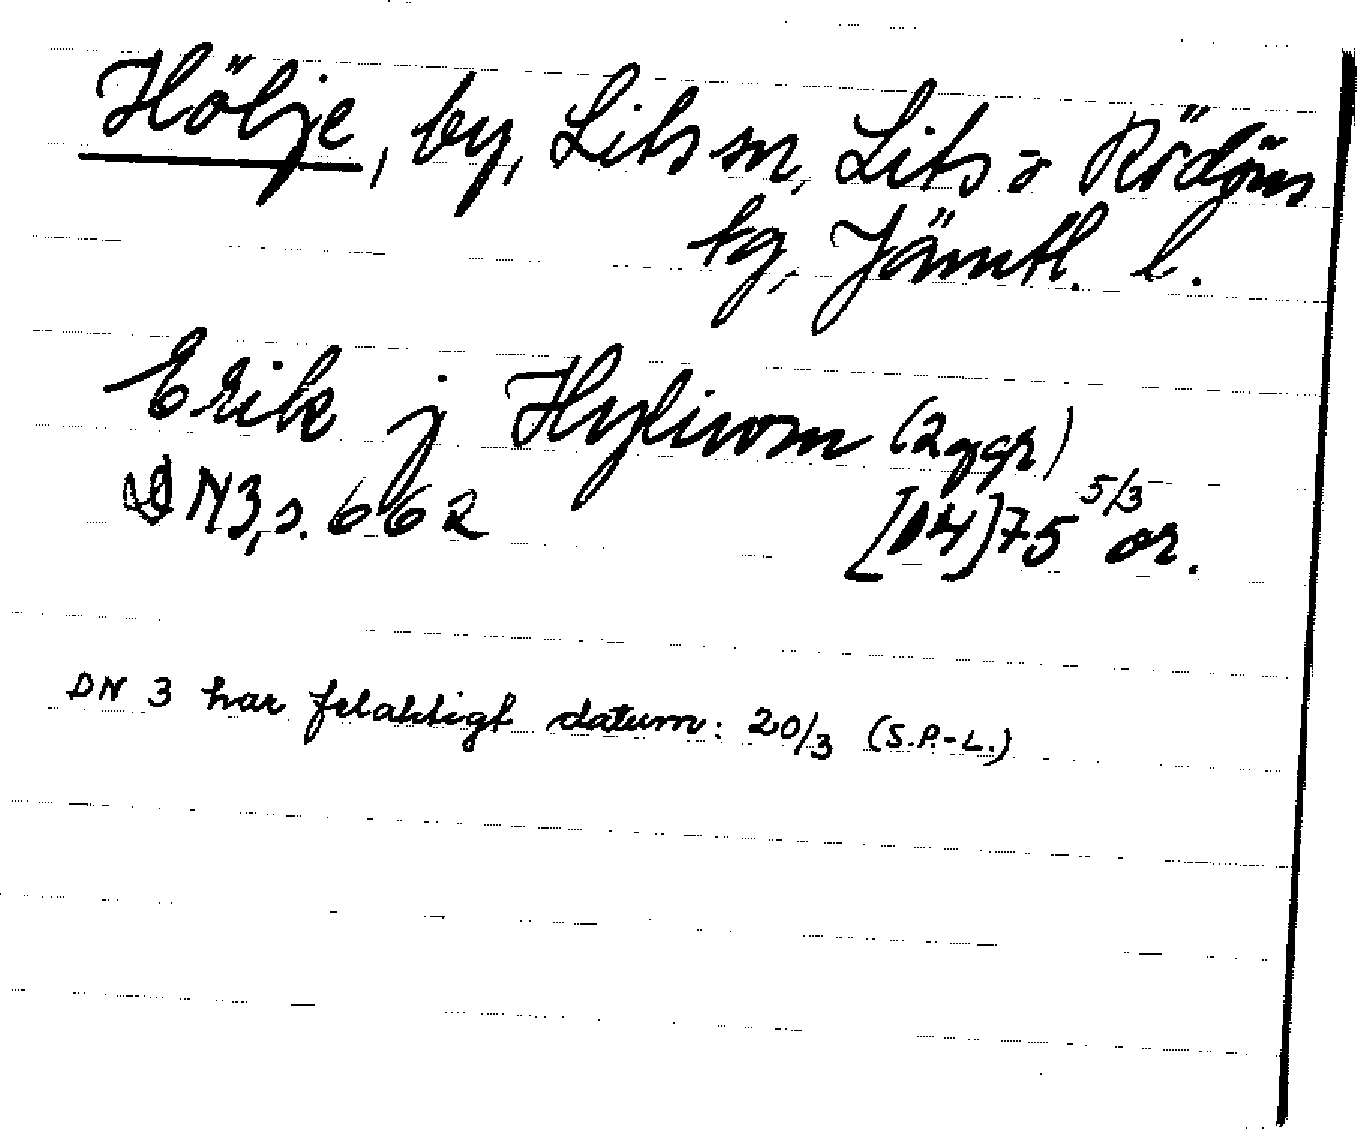 Hölje, by, Lits sn, Lits o Rödöns
tg, Jämtl. l.
Erik j Hyliwom (2 ggr)
DN3, s. 662 [14]75 5/3 or.
DN 3 har felaktigt datum: 20/3 (S.P.-L.)